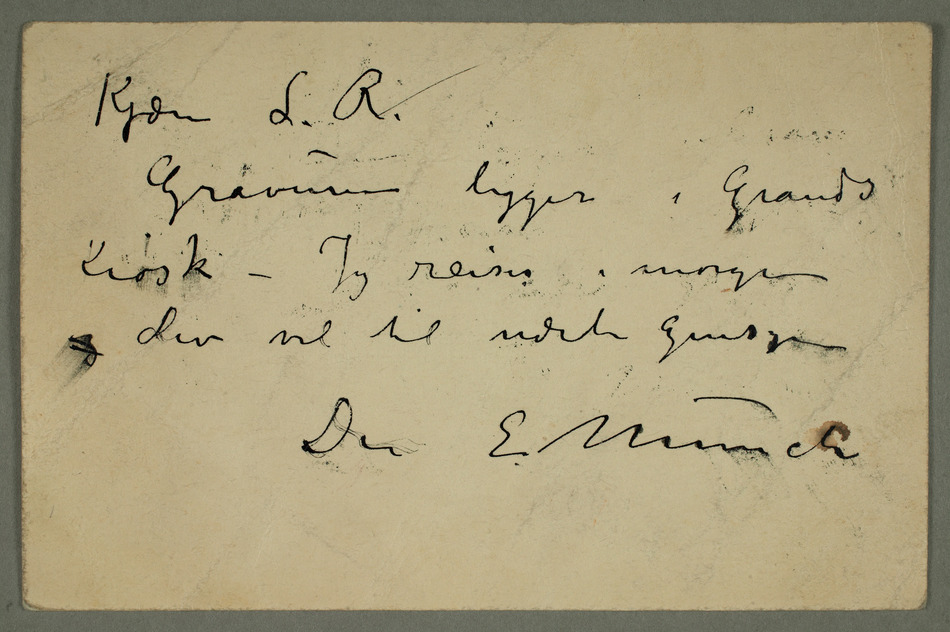 Kjære L. R.
Gravüren ligger i Grands
Kiosk – Jeg reiser i morgen
Lev vel til næste Gensyn
Din E. Munch